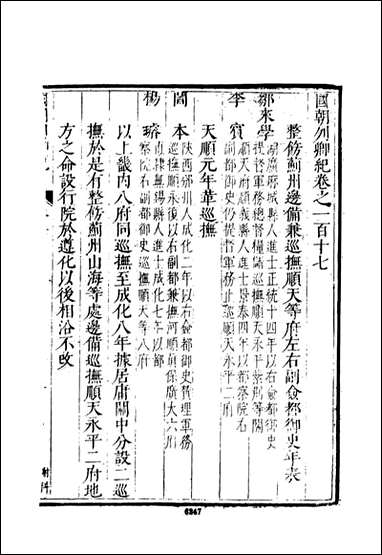 國朝列卿紀卷之一百十七
整飭薊州邊備兼巡撫順天等府左右副僉都御史年表
鄒來學
湖廣麻城縣人進士正統十四年以右僉都御史
提督軍務總督糧儲巡撫順天永平紫荊等關
李賓
順天府順義縣人進士景泰四年以都察院右
副都御史仍提督軍務止巡撫順天永平二府
天順元年革巡撫
閻本
陝西邠州人成化二年以右僉都御史贊理軍務
巡撫順永後以右副都兼撫河順真保廣大六府
楊璿
直隸無錫縣人進士成化七年以都
察院右副都御史巡撫順天等八府
以上畿內八府同巡撫至成化八年據居庸關中分設二巡
撫於是有整飭薊州山海等處邊備巡撫順天永平二府地
方之命設行院於遵化以後相沿不改
6247